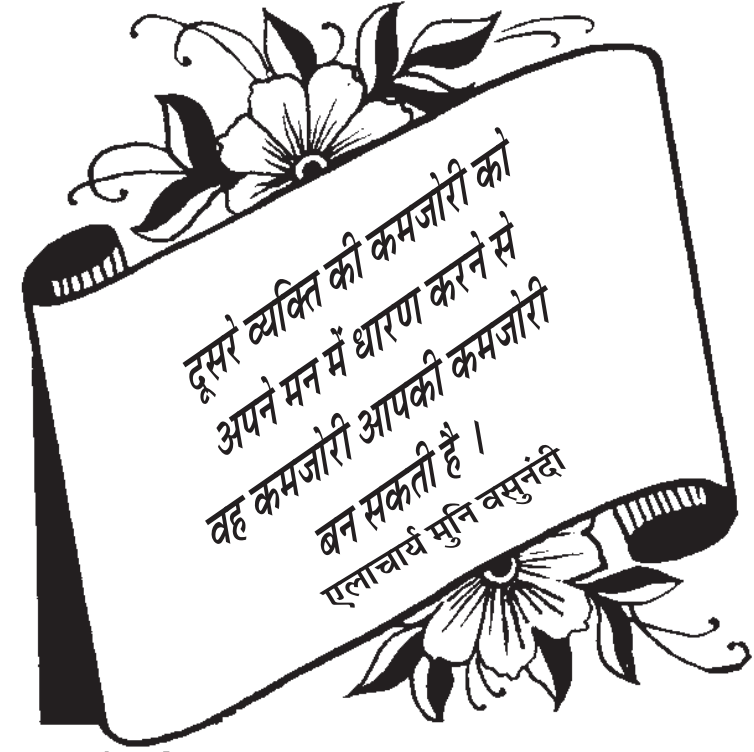 दूसरे व्यक्ति की कमजोरी को
अपने मन में धारण करने से
वह कमजोरी आपकी कमजोरी
बन सकती है ।
एलाचार्य मुनि वसुनंदी